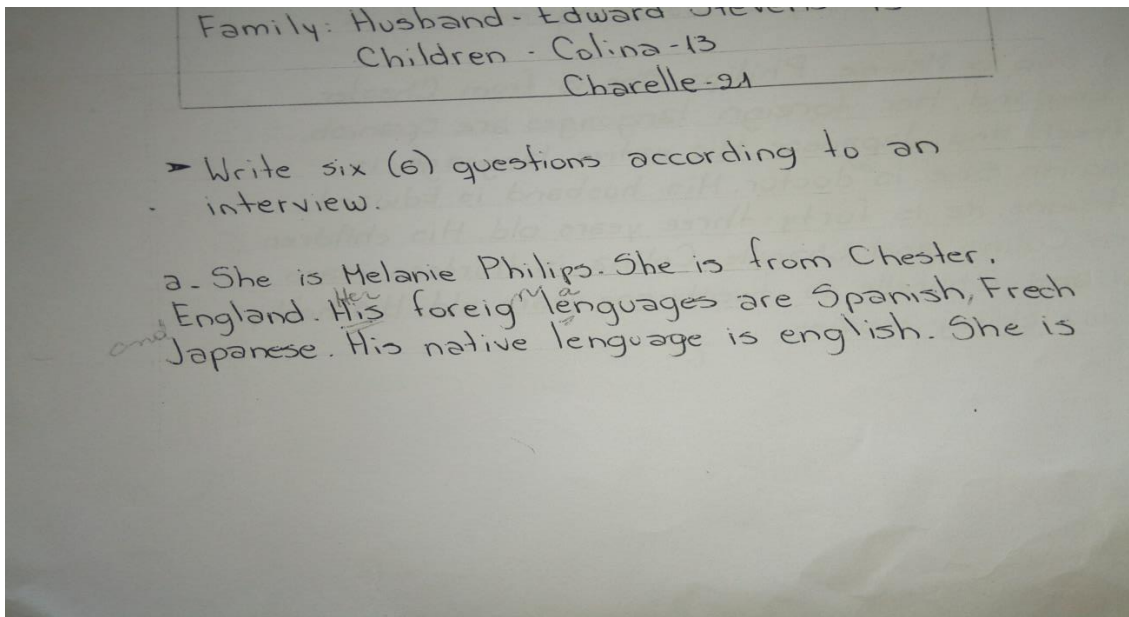 Family: Husband - Edward
Children - Colina - 13
Charelle - 21
➤ Write six (6) questions according to an
interview.
a - She is Melanie Philips. She is from Chester.
Her n a
England. His foreig lenguages are Spanish, Frech
and Japanese. His native lenguage is english. She is